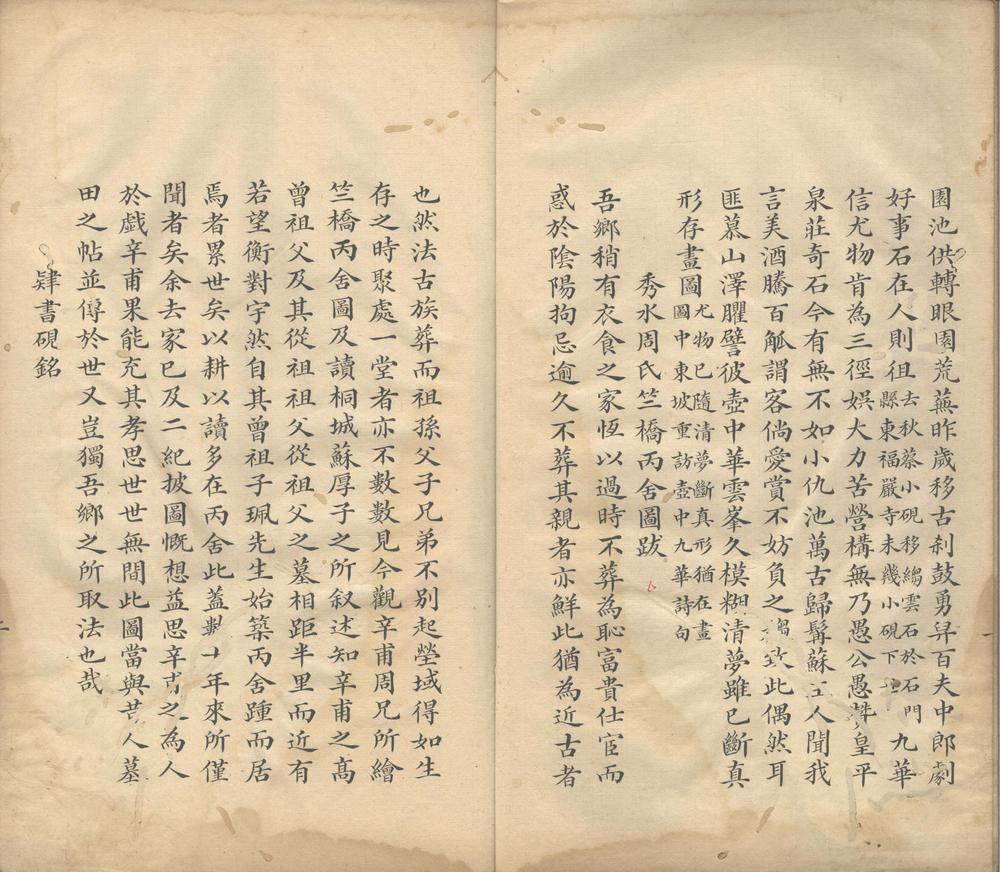 園池供轉眼園荒蕪昨歲移古刹鼓勇舁百夫中郎劇
好事石在人則徂去秋蔡小硯移縐雲石於石門縣東福嚴寺未幾小硯下九華
信尤物肯為三徑娛大力苦營構無乃愚公愚皇平
泉莊奇石今有無不如小仇池萬古歸髯蘇主人聞我
言美酒騰百觚謂客倘愛賞不妨負之致此偶然耳
匪慕山澤臞譬彼壺中華雲峯久模糊清夢雖已斷真
形存畫圖尤物已隨清夢斷真形猶在畫圖中東坡重訪壺中九華詩句
秀水周氏竺橋丙舍圖跋
吾鄉稍有衣食之家恆以過時不葬為恥富貴仕宦而
惑於陰陽拘忌逾久不葬其親者亦鮮此猶為近古者
也然法古族葬而祖孫父子兄弟不別起塋域得如生
存之時聚處一堂者亦不數數見今觀辛甫周兄所繪
竺橋丙舍圖及讀桐城蘇厚子之所叙述知辛甫之髙
曾祖父及其從祖祖父從祖父之墓相距半里而近有
若望衡對宇然自其曾祖子珮先生始築丙舍踵而居
焉者累世矣以耕以讀多在丙舍此蓋數十年來所僅
聞者矣余去家已及二紀披圖慨想益思辛甫之為人
於戲辛甫果能充其孝思世世無間此圖當與昔人墓
田之帖並傳於世又豈獨吾鄉之所取法也哉
肄書硯銘